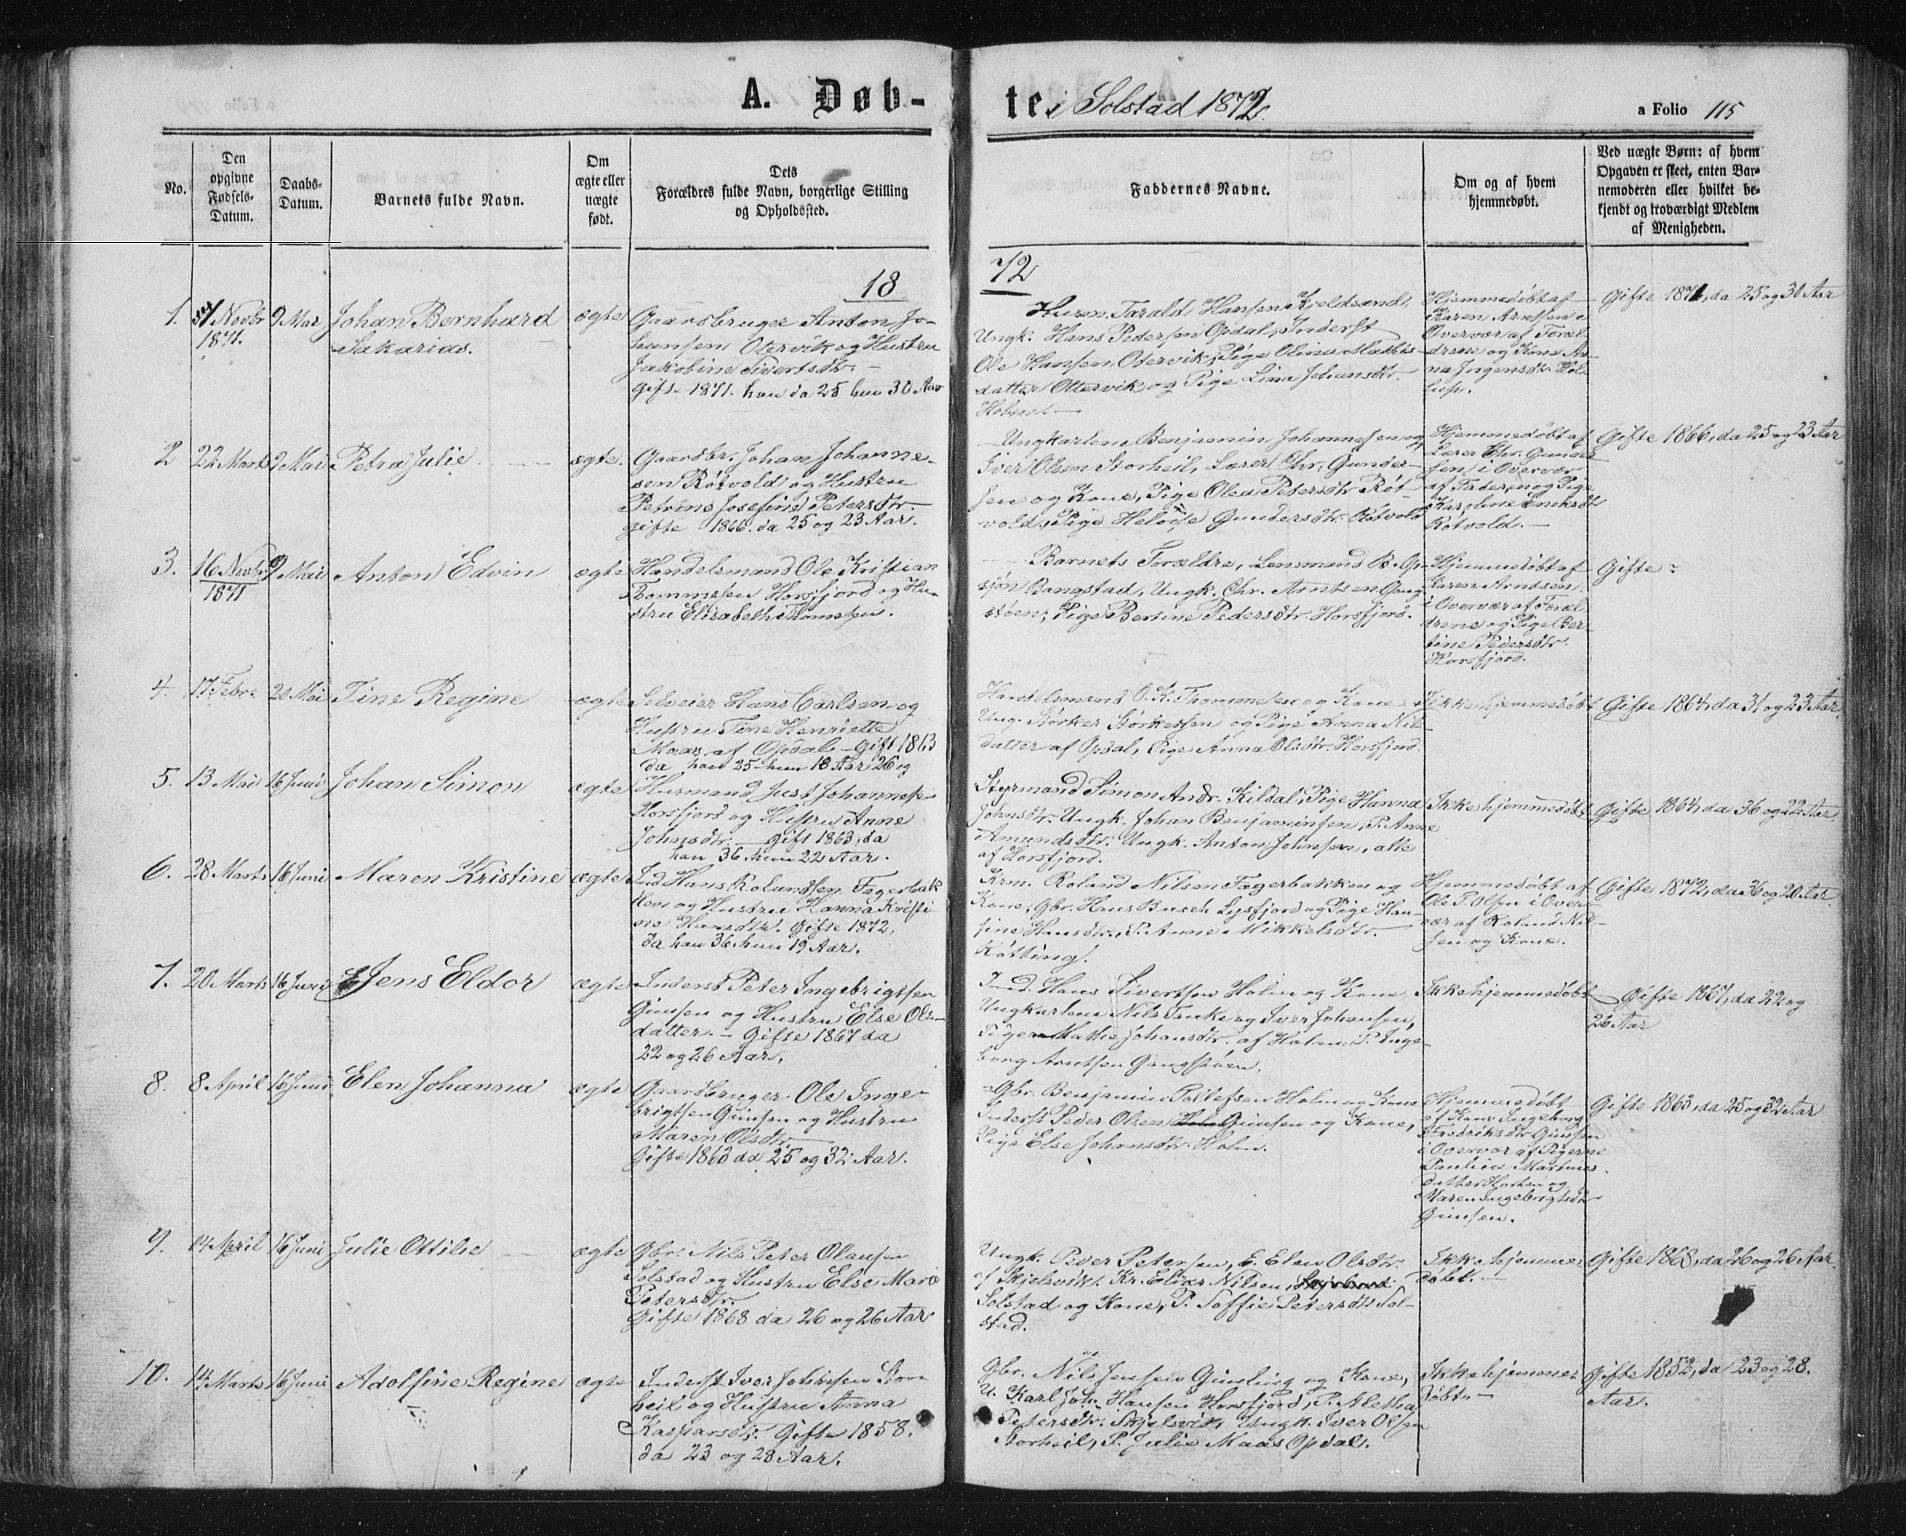 A. Døb-
te i Solstad 1872.
a Folio 115
No.
Den
opgivne
Fødsels-
Datum.
Daabs-
Datum.
Barnets fulde Navn.
Om
ægte eller
uægte
født.
Dets
Forældres fulde Navn, borgerlige Stilling
og Opholdssted.
Faddernes Navne.
Om og af hvem
hjemmedøbt.
Ved uægte Børn: af hvem
Opgaven er skeet, enten Bar-
nemoderen eller hvilket be-
kjendt og troværdigt Medlem
af Menigheden.
18
72
1.
Novbr
1871.
9 Mai
Johan Bernhard
Sakarias.
ægte
Gaardbruger Anton Jo-
hansen Otervik og Hustru
Jakobine Sivertsdtr.
Gifte 1871. han da 25 hun 30 Aar
Husm. Tarald Hansen Kjeldsand,
Ungk. Hans Pedersen Opdal, Inderst
Ole Hansen Otervik, Pige Olina Mathis-
datter Ottervik og Pige Lina Johansdtr.
Holmet
Hjemmedøbt af
Karen Arntsen i
Overvær af Foræl-
drene og Kone An-
na Jørgensdtr.
Gifte 1871, da 25 og 30 Aar
2
22 Marts
9 Mai
Petra Julie
ægte.
Gaardbr. Johan Johanne-
sen Røtvold og Hustru
Petrine Josefine Petersdtr.
gifte 1866. da 25 og 23 Aar.
Ungkarlene Benjamin Johannesen og
Iver Olsen Storheil, Lærer Chr. Gunder-
sen og Kone, Pige Olea Petersdtr Røt-
vold, Pige Helvise Gundersdtr. Røtvold
Hjemmedøbt af
Lærer Chr. Gunder-
sen i Overvær
af Faderen og Pige
Karoline Enoksdtr
Røtvold.
Gifte 1866, da 25 og 23 Aar
3.
16 Novbr.
1871
9 Mai
Anton Edvin
ægte
Handelsmand Ole Kristian
Thommesen Horsfjord og Hu-
stru Elisabeth Thomesen.
Barnets Forældre, Lensmand B. Gr-
sjøn Bangstad, Ungk. Chr. Arntsen Gang-
støen, Pige Bertine Pedersdtr. Horsfjord.
Hjemmedøbt af
Karen Arntsen
i Overvær af Foræl
drene og Pige Ber-
tine Pedersdtr.
Horsfjord.
Gifte
4.
17 Febr.
20 Mai
Tine Regine
ægte
Selveier Hans Carlsen og
Hustru Tine Henriette
Maas af Opdal - Gift 1863
da han 25 hun 18 Aar 26 og
Handelsmand O. K. Thommesen og Kone,
Ung. Størker Størkersen og Pige Anna Nils
datter af Opdal, Pige Anna Olsdtr. Horsfjord.
Ikke hjemmedøbt
Gifte 1864, da 31 og 23 Aar
5.
13 Mai
16 Juni
Johan Simon
ægte
Husmand Just Johannesen
Horsfjord og Hustru Anne
Johnsdtr. - Gift 1863, da
han 36 hun 22 Aar.
Styrmand Simon Andr. Kildal, Pige Hanna
Johnsdtr. Ungk. Johan Benjaminsen, P. Anne
Amundsdtr. Ungk. Anton Johnsen, alle
af Horsfjord.
Ikke hjemmedøbt
Gifte 1864, da 36 og 22 Aar
6.
28 Marts
16 Juni
Maren Kristine
ægte
Ind. Hans Rolandsen Fagerbak
ken og Hustru Hanna Kristi
ne Hansdtr. Gifte 1872.
da han 36 hun 19 Aar.
Krm. Roland Nilsen Fagerbakken og
Kone, Gbr. Hans Busch Lysfjord og Pige Han-
sine Hansdtr., P. Anne Mikkelsdtr.
Køtting.
Hjemmedøbt af
Ole P. Olsen i Over-
vær af Roland Nil-
sen og Kone.
Gifte 1872, da 36 og 20 Aar
7.
20 Marts
16 Juni
Jens Eldor
ægte
Inderst Peter Ingebrigtsen
Gimsen og Hustru Else Ols-
datter. - Gifte 1867 da
22 og 26 Aar.
Ind. Hans Sivertsen Holm og Kone
Ungkarlene Nils Finke og Iver Johansen,
Pigen Mathe Johansdtr. af Holm, P. Inge-
borg Arntsen Gangstøen.
Ikke hjemmedøbt
Gifte 1867, da 22 og
26 Aar
8.
8 April
16 Juni
Elen Johanna
ægte
Gaardbruger Ole Inge-
brigtsen Gimsen og Hustru
Maren Olsdtr.
Gifte 1863 da 25 og 32 Aar.
Gbr. Benjamin Tollefsen Holm og Kone
Inderst Peder Olsen Gimsen og Kone,
Pige Else Johansdtr. Holm.
Hjemmedøbt
af Kone Ingeborg
Fredriksdtr Gimsen
i Overvær af Pigerne
Pauline Martines-
datter Horten og
Maren Ingebrigtsdtr
Gimsen.
Gifte 1863, da 25 og 32 Aar
9.
14 April
16 Juni
Julie Ottilie
ægte
Gbr. Nils Peter Olausen
Solstad og Hustru Else Marie
Petersdtr.
Gifte 1868 da 26 og 26 Aar
Ungk. Peder Petersen, E. Elen Olsdtr.
af Skjelsvik, Kr. Elias Nilsen,
Solstad og Kone, P. Soffie Petersdtr Sol-
stad.
Ikke hjemme-
døbt.
Gifte 1868, da 26 og 26 Aar.
10.
14 Marts
16 Juni
Adolfine Regine
ægte
Inderst Iver Johnsen Stor
heil og Hustru Anna
Kaspersdtr. Gifte 1858.
da 23 og 28 Aar.
Gbr. Nils Jensen Gimling og Kone,
U. Karl Joh. Hansen Horsfjord, P. Aletha
Petersdtr. Skjelsvik, Ungk. Iver Olsen
Storheil, P. Julie Maas Opdal.
Ikke hjemme-
døbt.
Gifte 1852, da 23 og 28.
Aar.